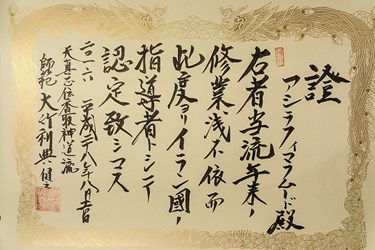 證
アシラフィマラムード殿
右者当流年来ノ
修業浅不依而
此度リイラン國ノ
指導者トシテ
認定致シマス
二〇一六 平成二十八年八月十一日
天真正伝香取神道流
師範 大竹利典健之